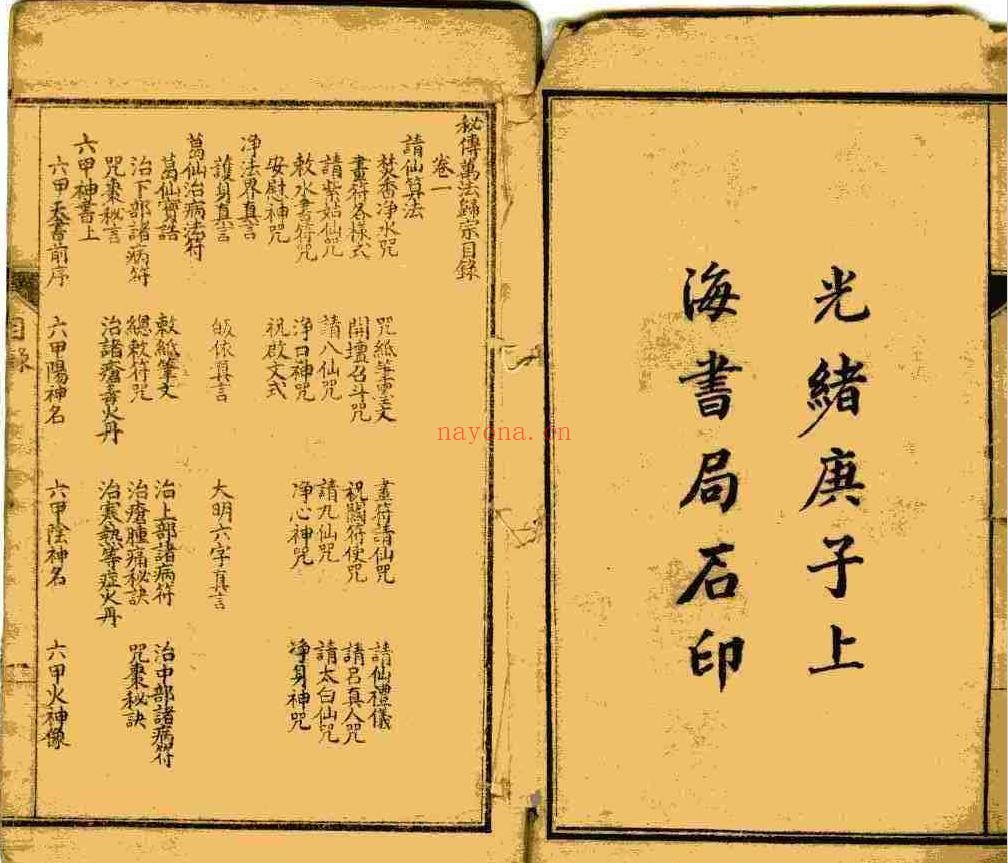 光緒庚子上
海書局石印
秘傳萬法歸宗目錄
卷一
請仙算法
焚香淨水咒 咒紙筆靈文 畫符請仙咒 請仙禮儀
畫符各樣式 開壇召斗咒 祝闕符使咒 請呂真人咒
請紫姑仙咒 請八仙咒 請九仙咒 請太白仙咒
敕水書符咒 淨口神咒 淨心神咒 淨身神咒
安慰神咒 祝啟文式
淨法界真言
護身真言 皈依真言 大明六字真言
葛仙治病法符
葛仙寶誥 敕紙筆文 治上部諸病符 治中部諸病符
治下部諸病符 總敕符咒 治瘡腫痛秘訣 咒棗秘訣
咒棗秘言 治諸瘡毒火丹 治寒熱等症火丹
六甲神書上
六甲天書前序 六甲陽神名 六甲陰神名 六甲火神像
目錄
一
nayona.cn